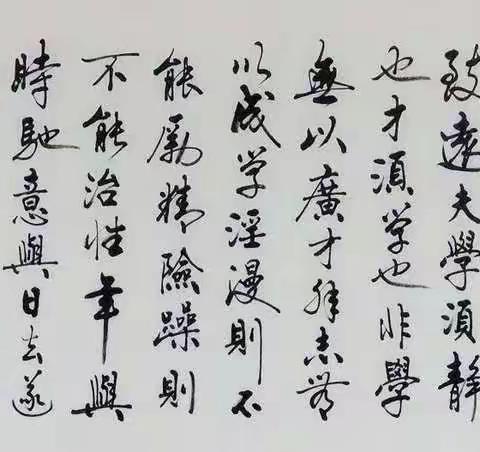 致遠夫學須靜
也才須学也非學
無以廣才非志無
以成学淫漫則不
能勵精險躁則
不能治性年與
時馳意與日去遂